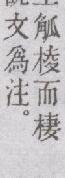 觚棱而棲
文為注。